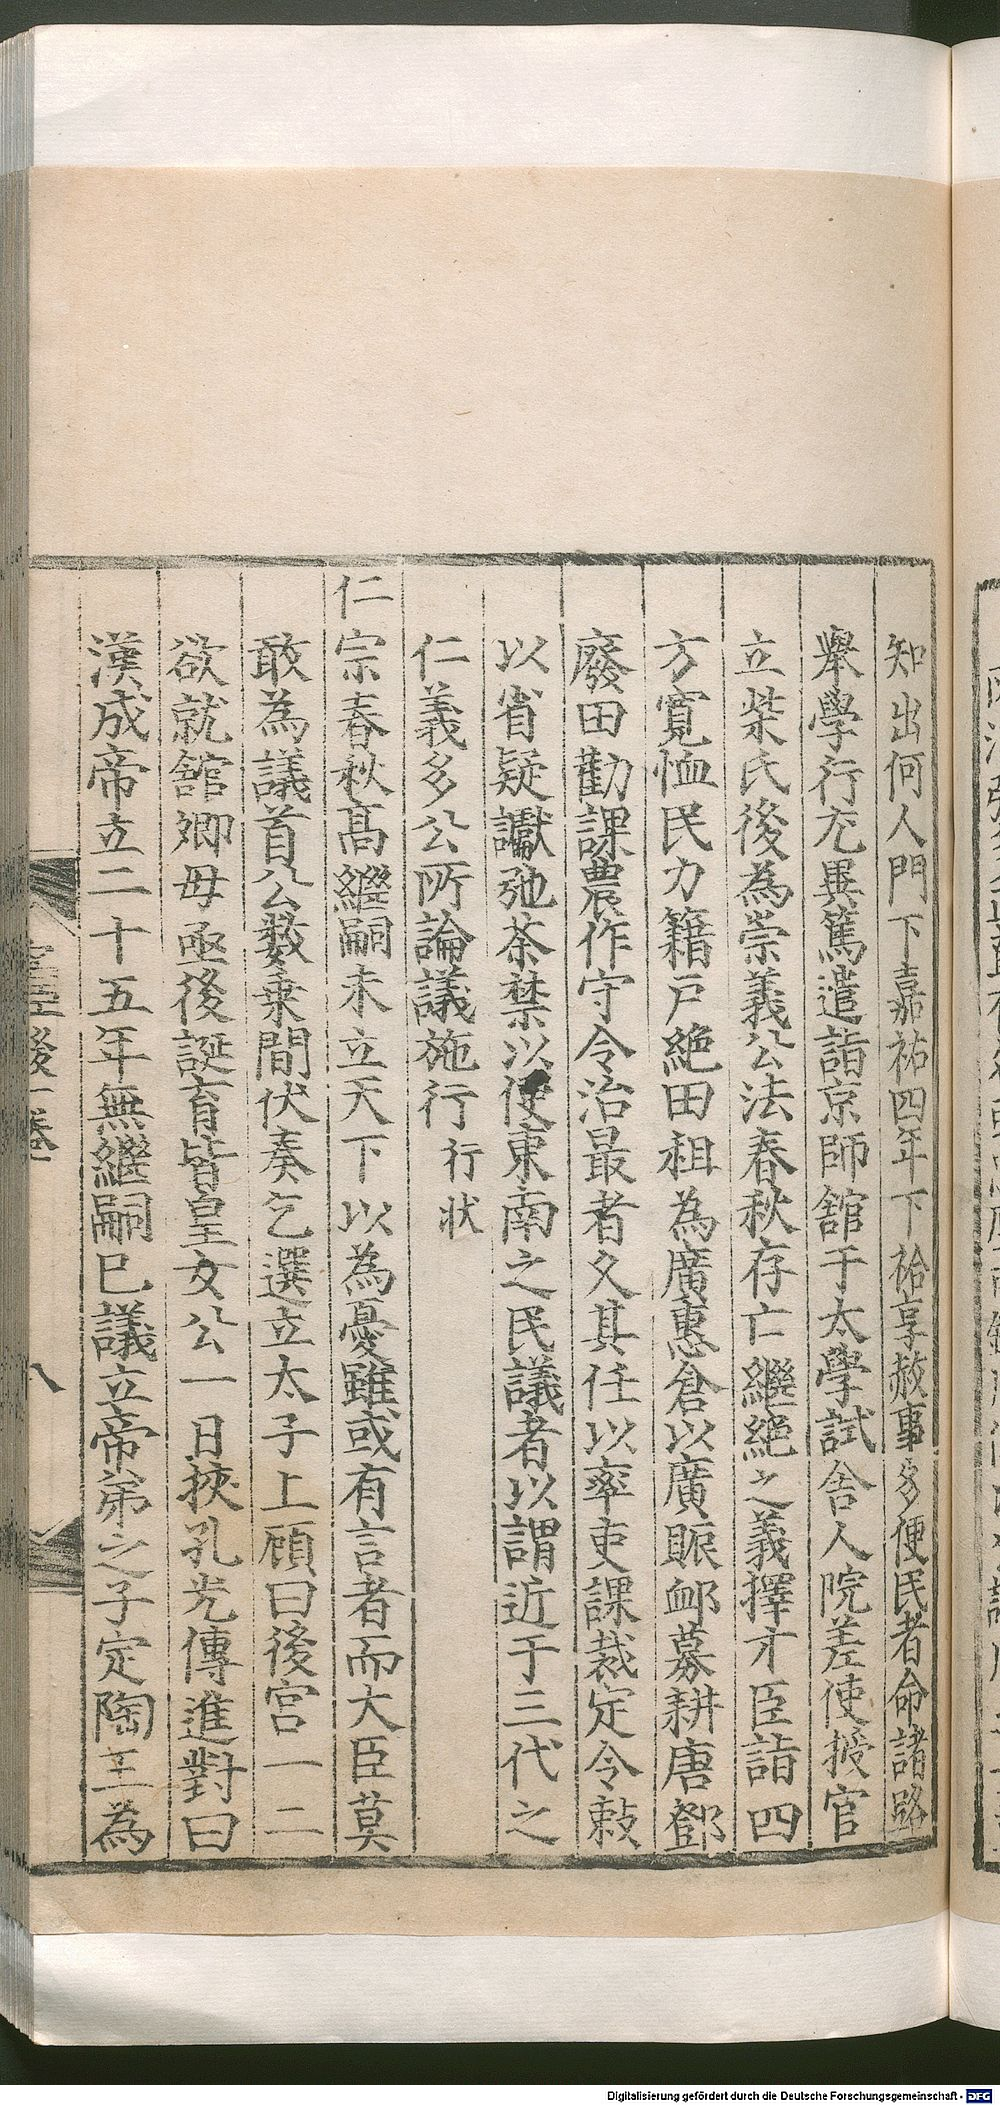 知出何人門下嘉祐四年下祫享赦事多便民者命諸路
舉學行尤異篤遣詣京師舘于太學試舍人院差使授官
立柴氏後為崇義公法春秋存亡繼絕之義擇才臣詣四
方寬恤民力籍戸絕田租為廣惠倉以廣賑卹募耕唐鄧
廢田勸課農作守令治最者久其任以率吏課裁定令敕
以省疑讞弛茶禁以便東南之民議者以謂近于三代之
仁義多公所論議施行行狀
仁宗春秋髙繼嗣未立天下以為憂雖或有言者而大臣莫
敢為議首公數乗間伏奏乞選立太子上顧曰後宮一二
欲就舘卿毋亟後誕育皆皇女公一日挾孔光傳進對曰
漢成帝立二十五年無繼嗣已議立帝弟之子定陶王為
後一卷
八
Digitalisierung gefördert durch die Deutsche Forschungsgemeinschaft - DFG